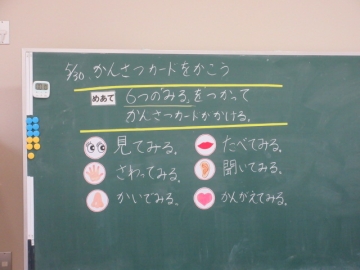 5/30 かんさつカードをかこう
めあて 6つの「みる」をつかって
かんさつカードがかける。
見てみる。 たべてみる。
さわってみる。 聞いてみる。
かいでみる。 かんがえてみる。